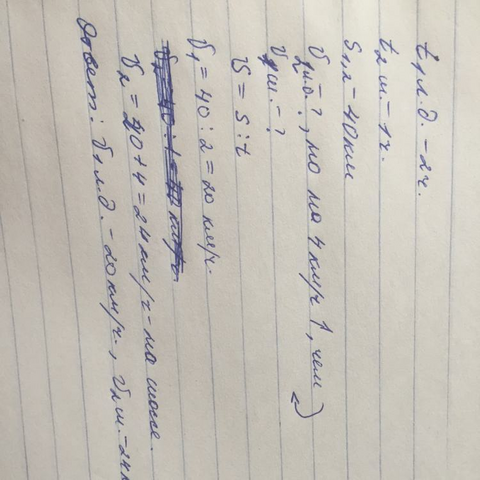 t₁ л.д. – 2ч.
t₂ ш. – 1ч.
S₁,₂ – 40км
V₂ш. – ?, но на 4км/ч ↑, чем
V₁ ш. – ?
V = S : t
V₁ = 40 : 2 = 20 км/ч.
V₂ = 20 + 4 = 24км/ч – на шоссе.
Ответ: V₁ л.д. – 20км/ч., V₂ ш. – 24к